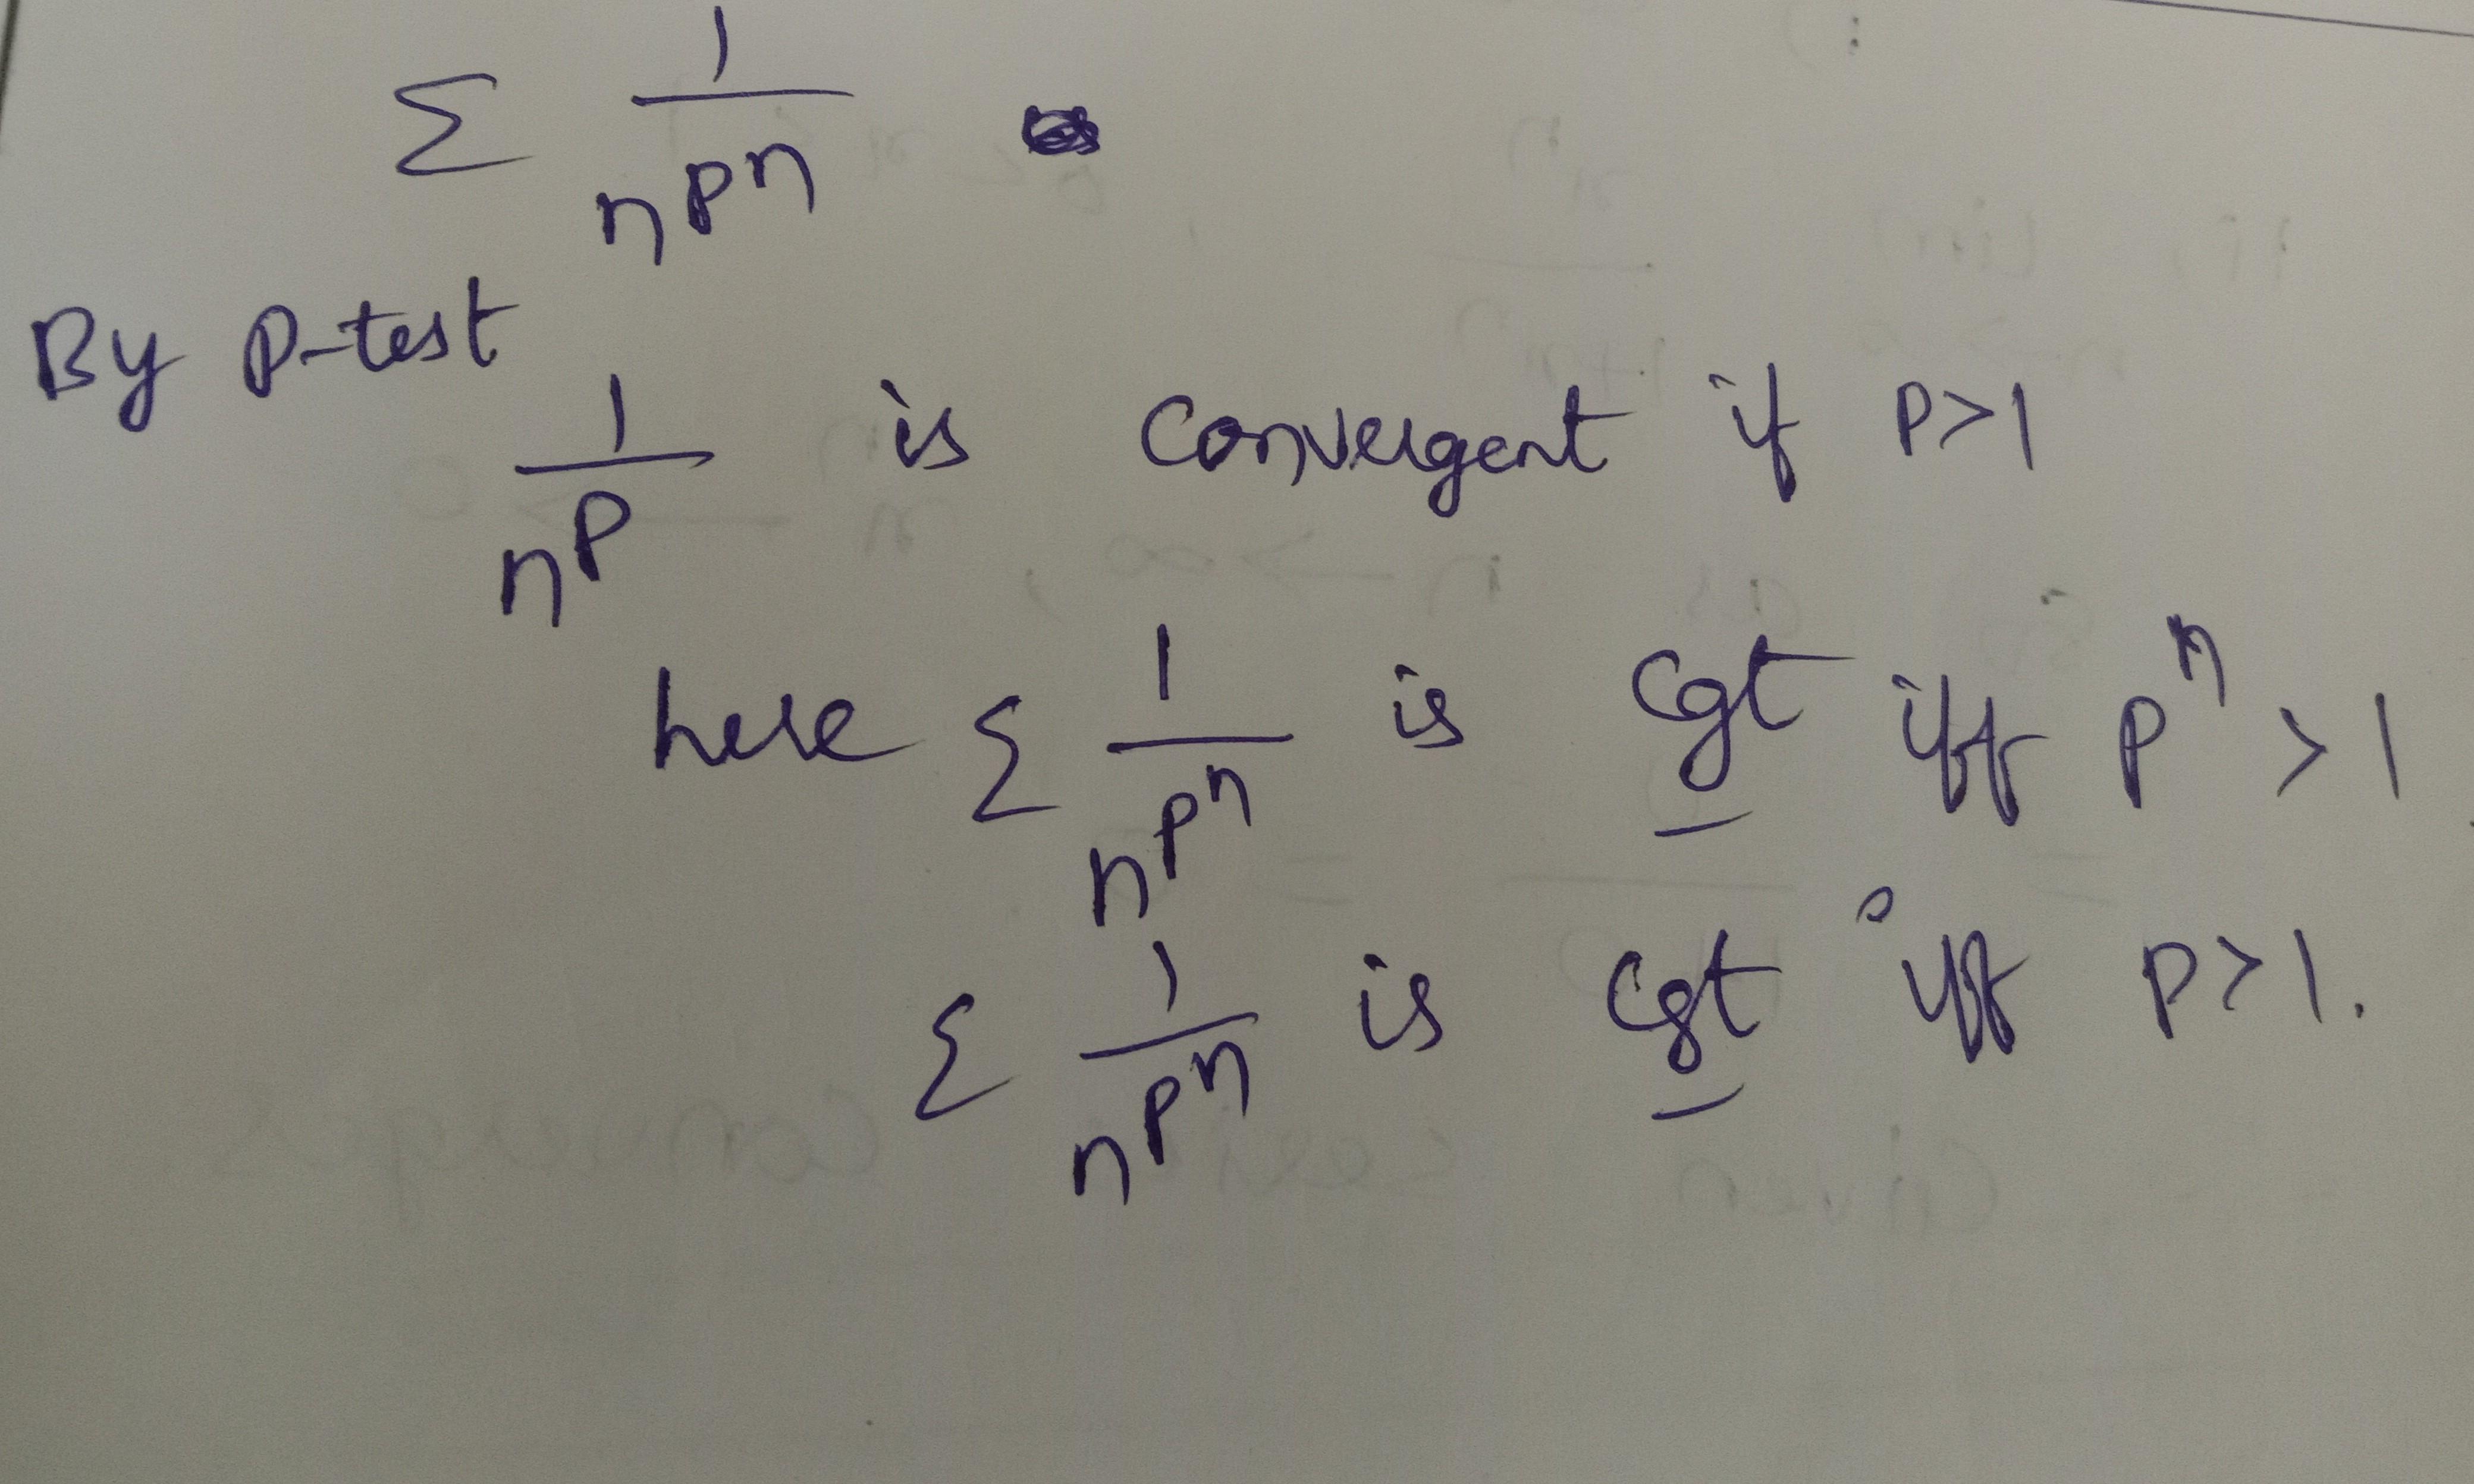 Σ 1/n^p^n
By P-test
1/n^p is convergent if P>1
here Σ 1/n^p^n is cgt iff p^n > 1
Σ 1/n^p^n is cgt iff p>1.